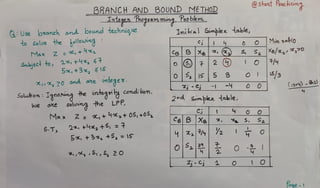 BRANCH AND BOUND METHOD
@start Practicing
Integer Programming Problem
Q: Use branch and bound technique
to solve the following:
Max Z = x₁ + 4x₂
Subject to, 2x₁ + 4x₂ ≤ 7
5x₁ + 3x₂ ≤ 15
x₁, x₂ ≥ 0 and are integers.
Solution: Ignoring the integrity condition,
we are solving the LPP,
Max Z = x₁ + 4x₂ + 0S₁ + 0S₂
S.T, 2x₁ + 4x₂ + S₁ = 7
5x₁ + 3x₂ + S₂ = 15
x₁, x₂, S₁, S₂ ≥ 0
Initial Simplex table,
Cj 1 4 0 0 Min ratio
CB B XB x₁ x₂ S₁ S₂ XB/x₂, x₂>0
0 S₁ 7 2 4 1 0 7/4
0 S₂ 15 5 3 0 1 15/3
Zj - Cj -1 -4 0 0
2nd Simplex table.
Cj 1 4 0 0
CB B XB x₁ x₂ S₁ S₂
4 x₂ 7/4 1/2 1 1/4 0
0 S₂ 39/4 7/2 0 -3/4 1
Zj - Cj 1 0 1 0
Page-1